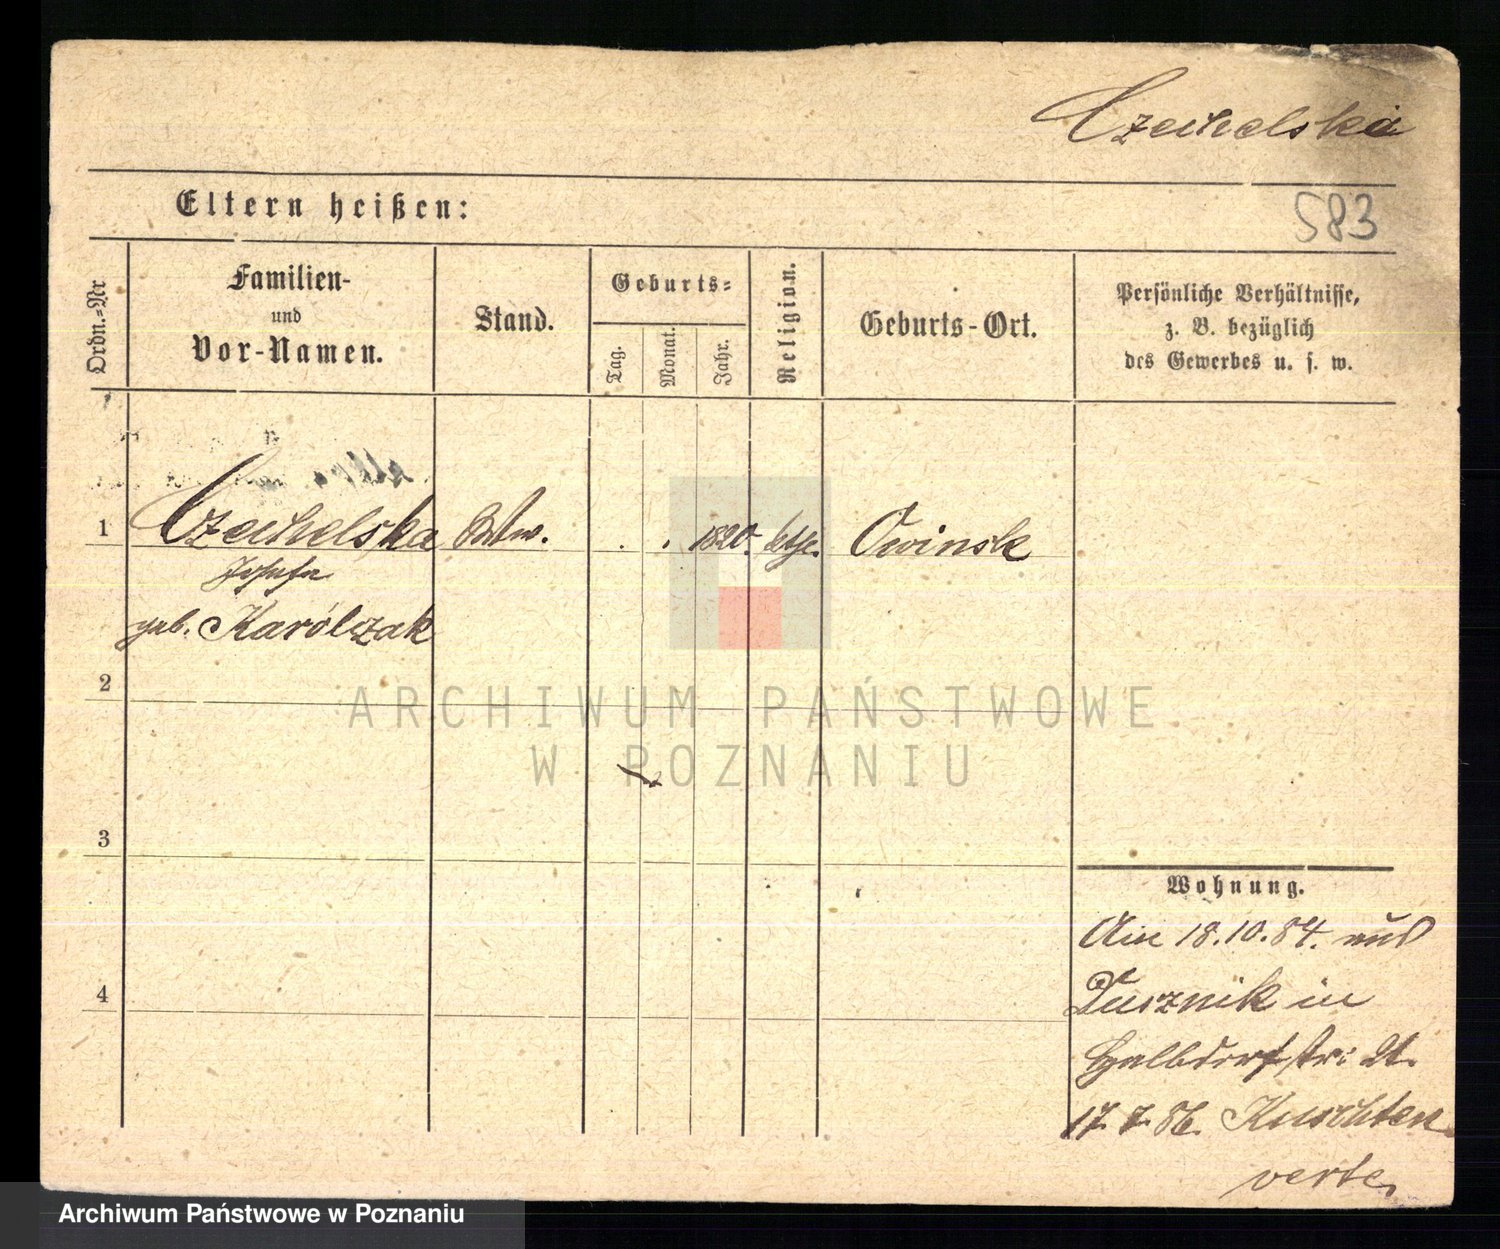 Czechelska
Eltern heißen:
583
Ordn.=Nr
Familien-
und
Vor-Namen.
Stand.
Geburts=
Tag.
Monat.
Jahr.
Religion.
Geburts-Ort.
Persönliche Verhältnisse,
z. B. bezüglich
des Gewerbes u. s. w.
1
Czechelska Wtw. 1820. kth. Owinsk
Josefa
geb. Karólczak
2
ARCHIWUM PAŃSTWOWE
W POZNANIU
3
Wohnung.
18.10.84. aus
4
Dusznik in
Halbdorfstr:
17.7.86. Kuschten
verte.
Archiwum Państwowe w Poznaniu